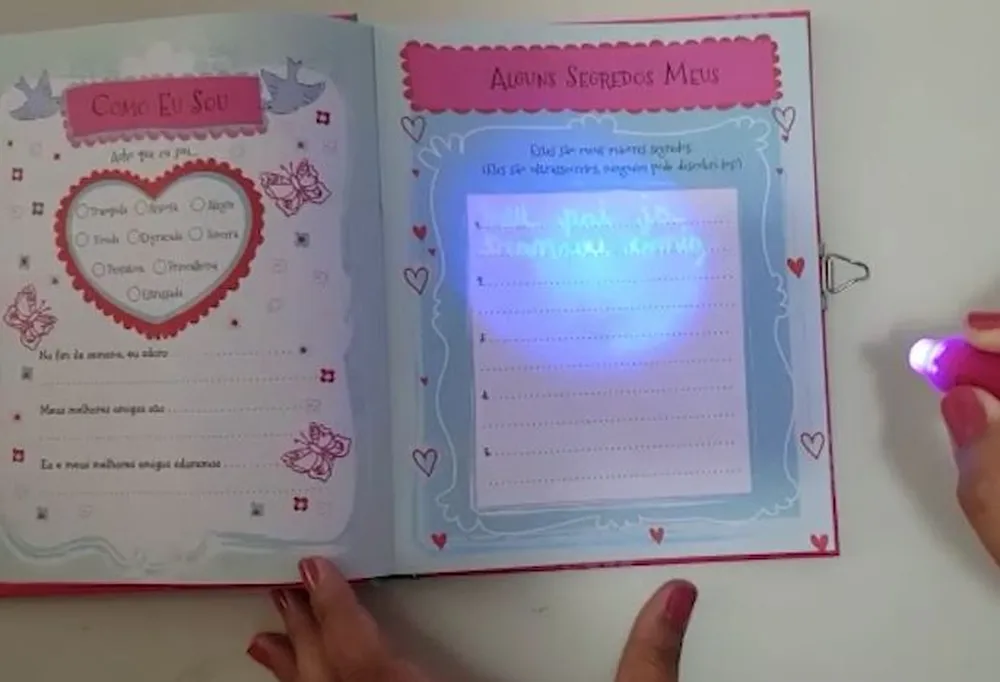 COMO EU SOU
Acho que eu sou...
Tranquila
Nervosa
Alegre
Tímida
Sincera
No fim de semana, eu adoro
Meus melhores amigos são
Eu e meus melhores amigos adoramos
ALGUNS SEGREDOS MEUS
Estes são meus maiores segredos.
(Eles são ultrassecretos, ninguém pode descobri-los!)
1.
Meu pai já
2.
3.
4.
5.